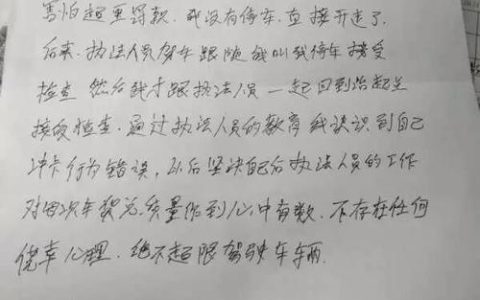 害怕超重罚款,我没有停车,直接开走了.
后来,执法人员驾车跟随我叫我停车接受
检查 然后我才跟执法人员一起回到治超站
接受检查.通过执法人员的教育我认识到自己
冲卡行为错误,以后坚决配合执法人员的工作
对每次车货总质量做到心中有数.不存在任何
侥幸心理.绝不超限驾驶车辆.